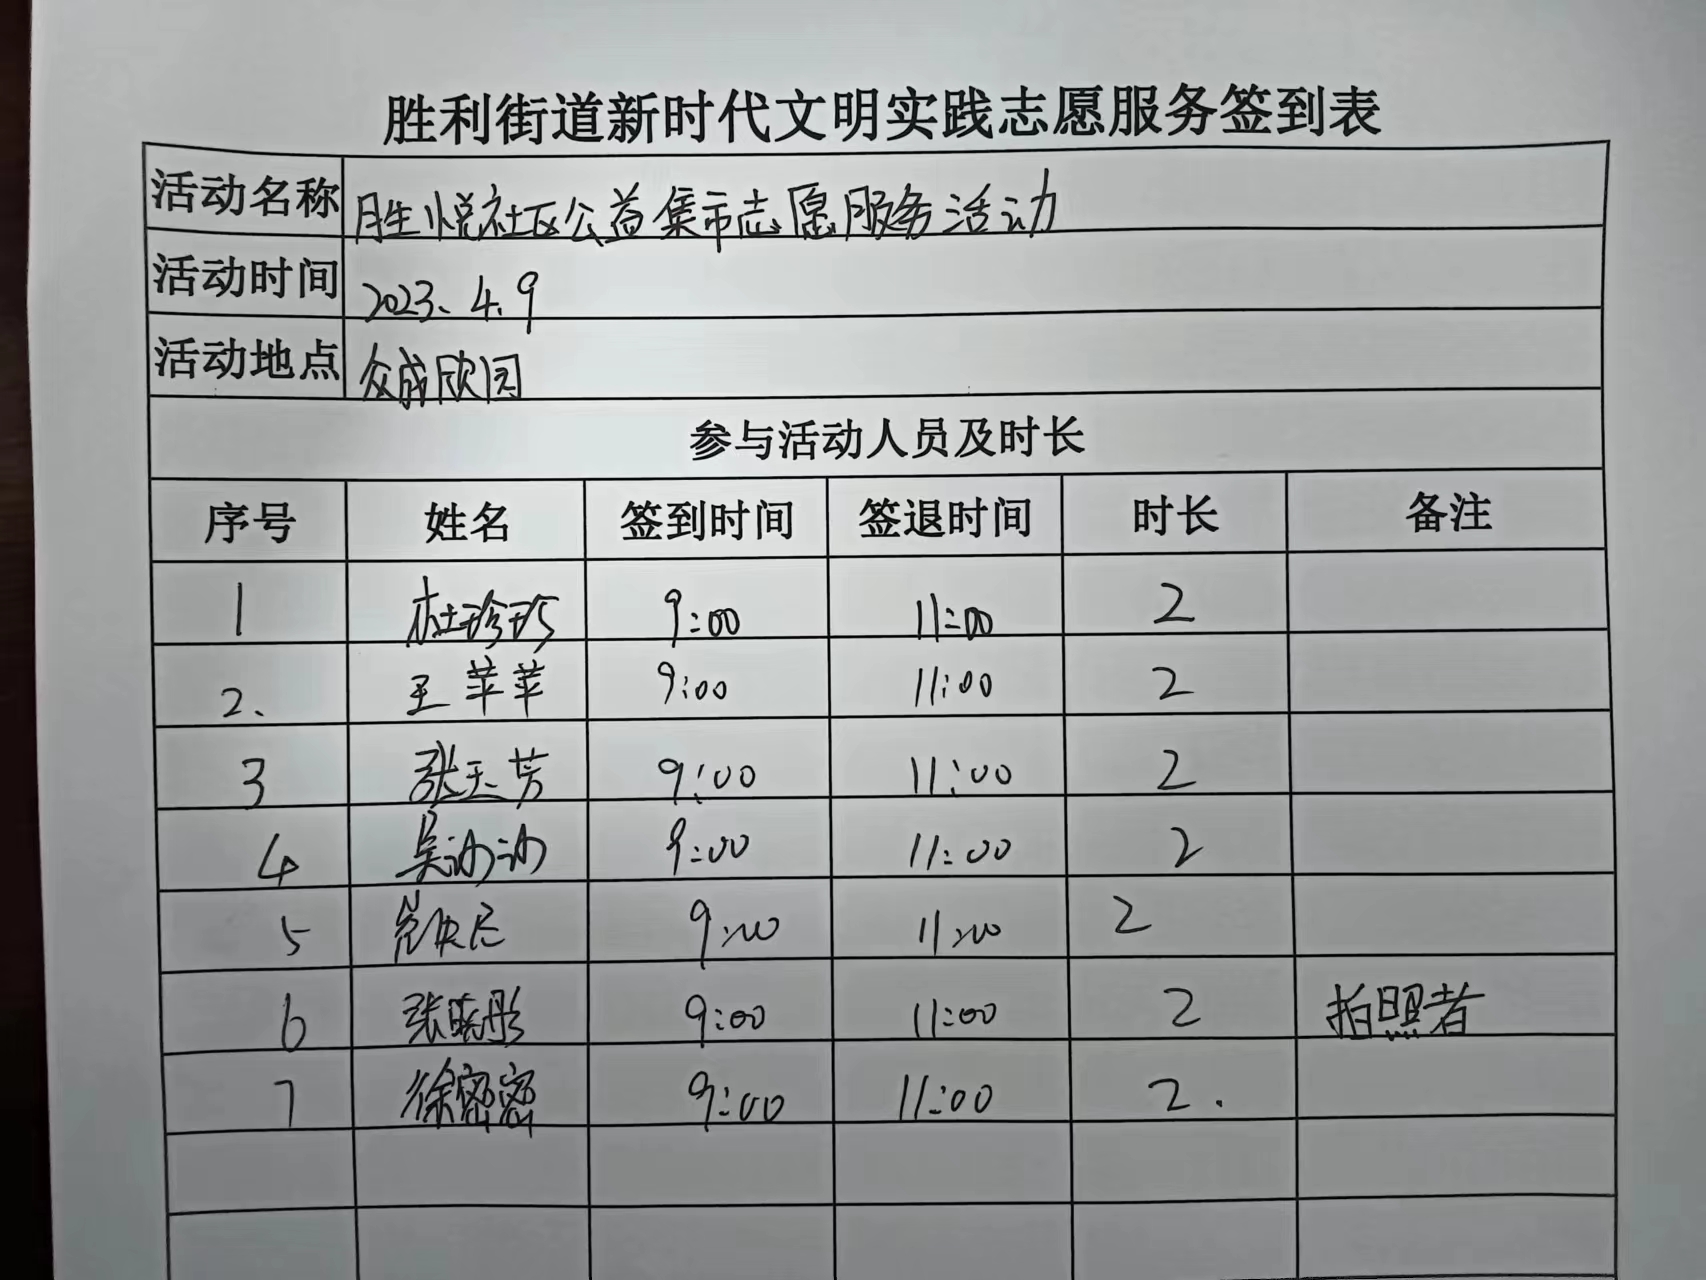 胜利街道新时代文明实践志愿服务签到表
活动名称 胜悦社区公益集市志愿服务活动
活动时间 2023、4.9
活动地点 众成欣园
参与活动人员及时长
序号 姓名 签到时间 签退时间 时长 备注
1 杜珍珍 9:00 11:00 2
2、 王苹苹 9:00 11:00 2
3 张玉芳 9:00 11:00 2
4 吴沙沙 9:00 11:00 2
5 9:00 11:00 2
6 张晓彤 9:00 11:00 2 拍照者
7 徐密密 9:00 11:00 2.